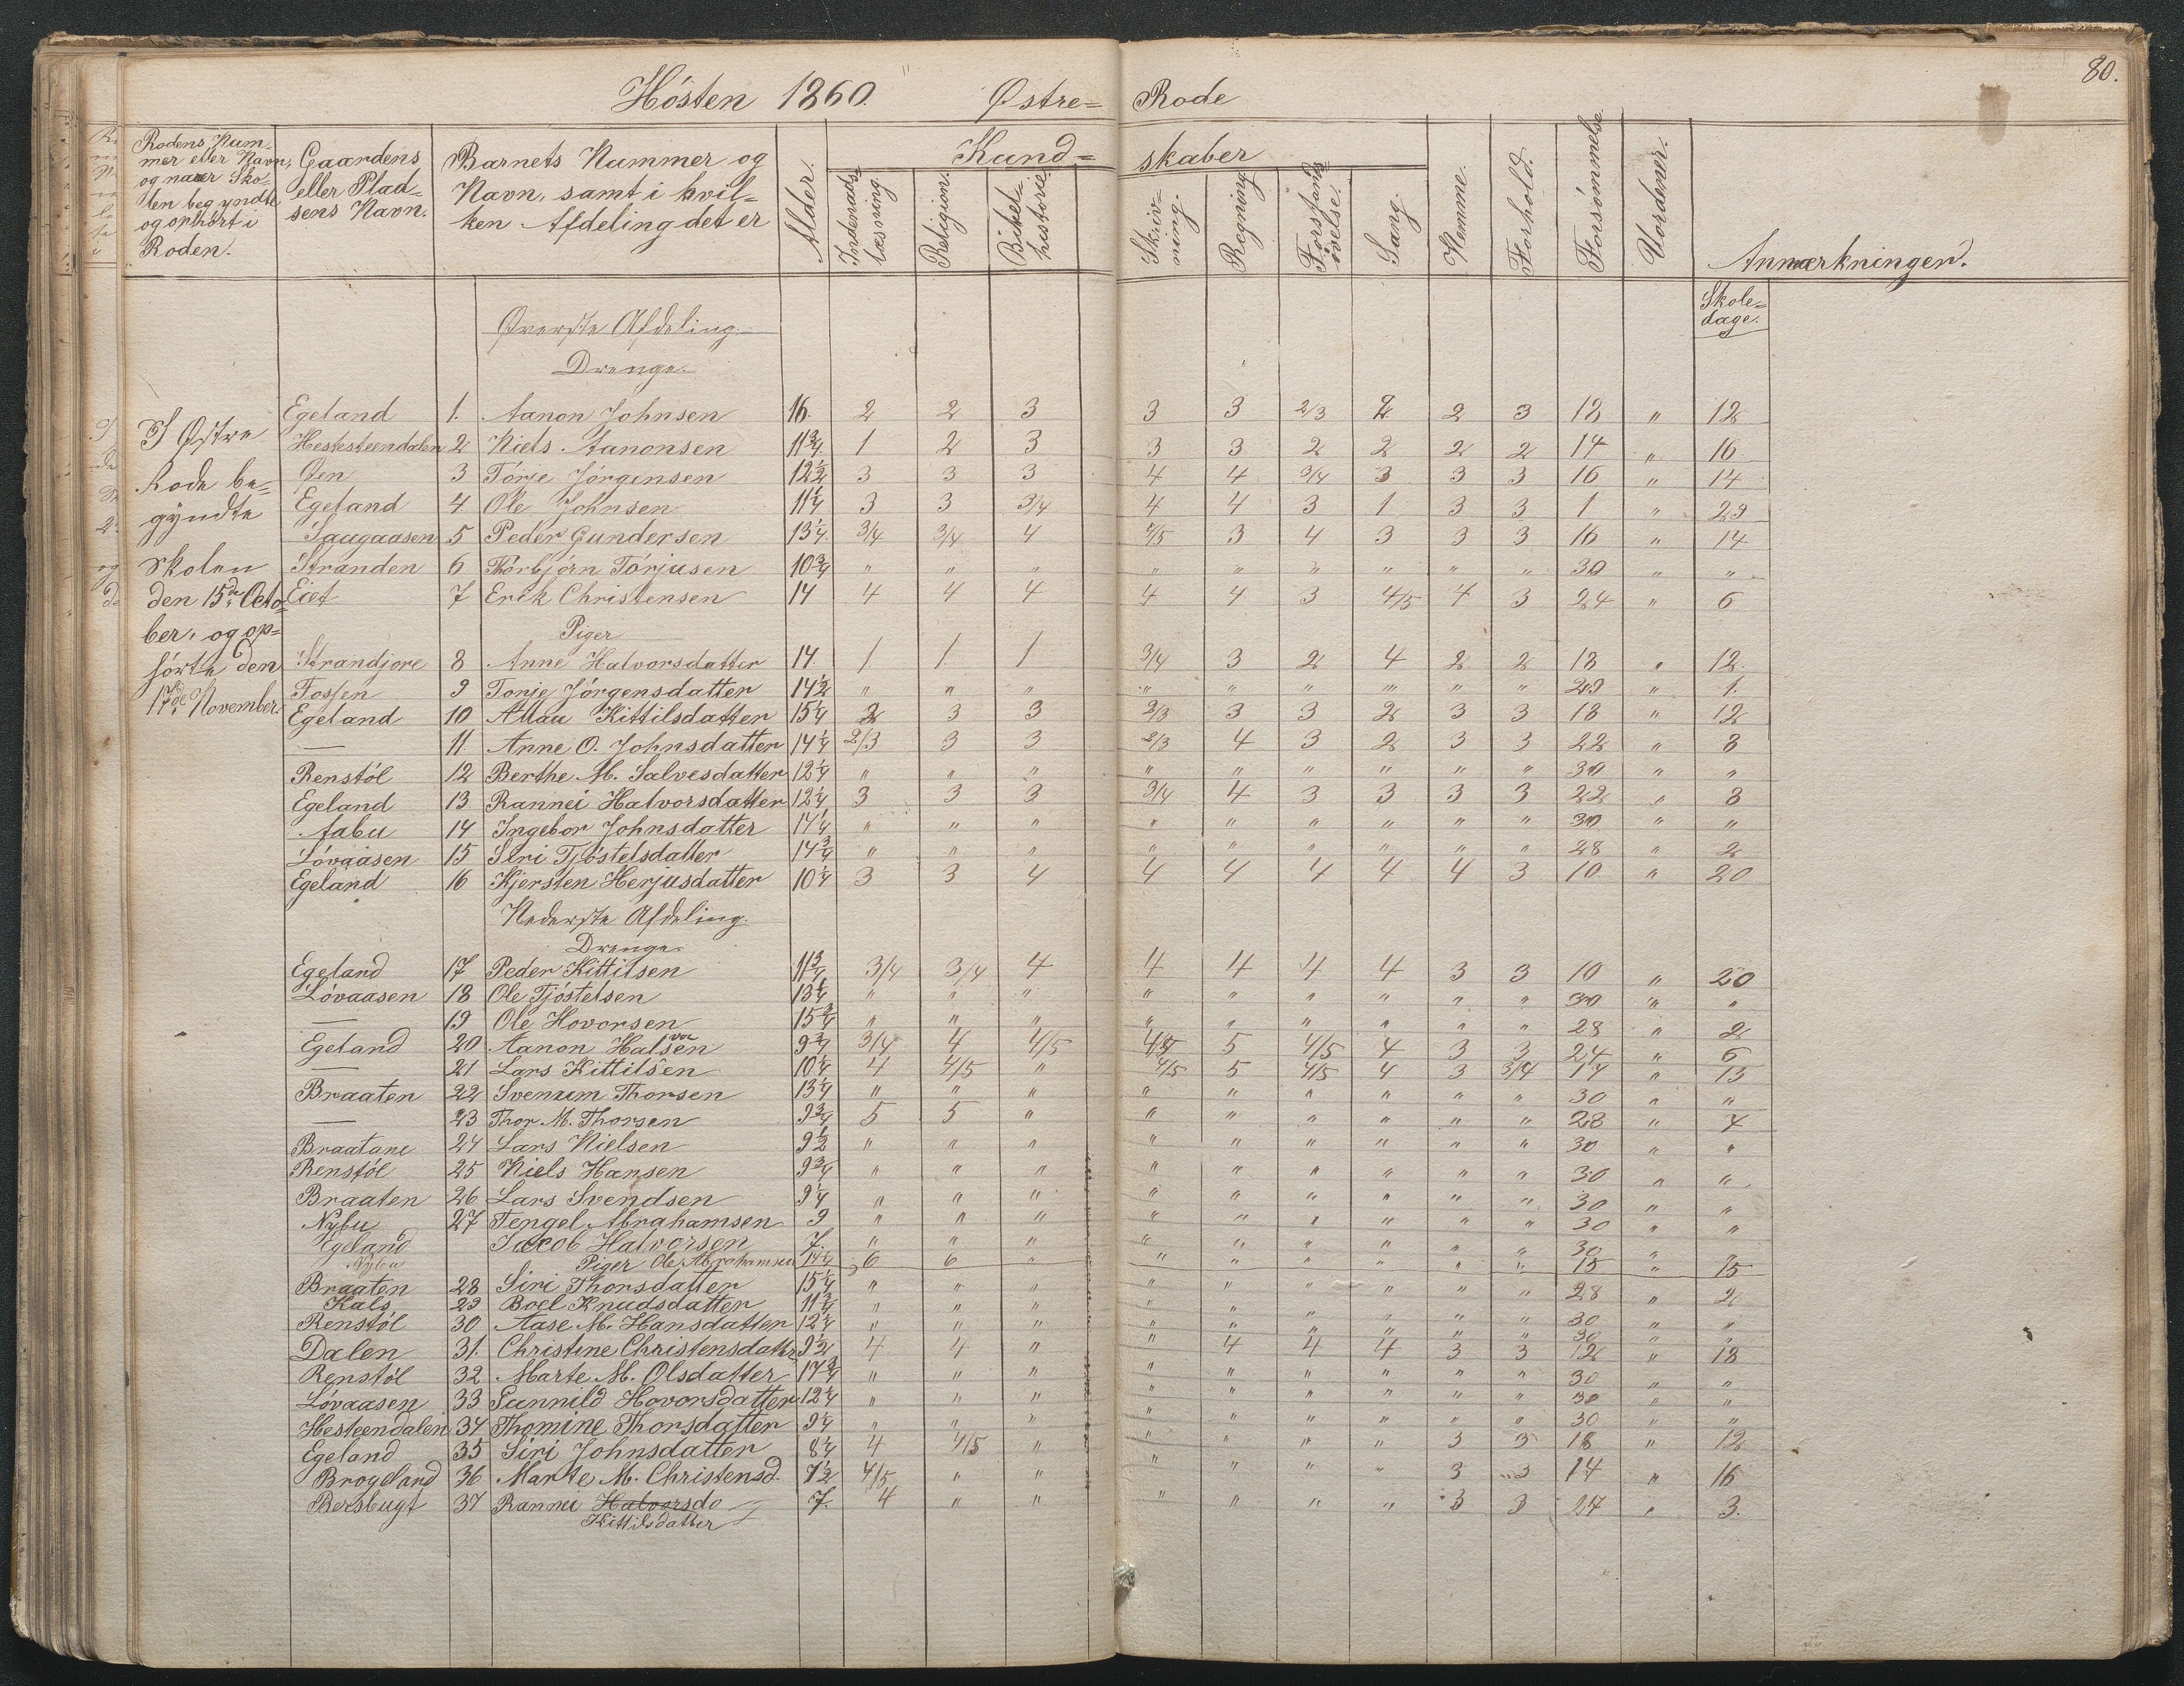 80.
Hösten 1860. Østre= Rode
Rodens Nummer eller Navn, og naar Skolen begyndte og ophørt i Roden.
Gaardens eller Pladsens Navn.
Barnets Nummer og Navn, samt i hvilken Afdeling det er
Alder.
Kund= skaber
Indenadslæsning.
Religion.
Bibelhistorie
Skrivning.
Regning
Forstandsövelse.
Sang.
Nemme.
Forhold.
Forsömmelse
Uordener.
Anmærkninger.
Skoledage.
Øverste Afdeling.
Drenge.
I Østre
Rode be=
gyndte
Skolen
den 15de Octo=
ber, og op=
hørte den
17de November.
Egeland 1. Aanon Johnsen 16. 2 2 3 3 3 2/3 2 2 3 18 " 12
Hestesteendalen 2 Niels Aanonsen 11 3/4 1 2 3 3 3 2 2 2 2 14 " 16
Øen 3 Törje Jörgensen 12 1/2 3 3 3 4 4 3/4 3 3 3 16 " 14
Egeland 4 Ole Johnsen 11 1/4 3 3 3/4 4 4 3 1 3 3 1 " 29
Saugaasen 5 Peder Gundersen 13 1/4 3/4 3/4 4 4/5 3 4 3 3 3 16 " 14
Stranden 6 Thorbjörn Törjusen 10 3/4 " " " " " " " " " 30 " "
Eiet 7 Erik Christensen 14 4 4 4 4 4 3 4/5 4 3 24 " 6
Piger
Strandjore 8 Anne Halvorsdatter 14. 1 1 1 3/4 3 2 4 2 2 18 " 12
Fossen 9 Tonje Jörgensdatter 14 1/2 " " " " " " " " " 29 " 1.
Egeland 10 Allau Kittilsdatter 15 1/4 2 3 3 2/3 3 3 2 3 3 18 " 12
— 11. Anne O. Johnsdatter 14 1/4 2/3 3 3 2/3 4 3 2 3 3 22 " 8
Renstöl 12 Berthe M. Salvesdatter 12 1/4 " " " " " " " " " 30 " "
Egeland 13 Rannei Halvorsdatter 12 1/4 3 3 3 3/4 4 3 3 3 3 22 " 8
Aabu 14 Ingebor Johnsdatter 14 1/4 " " " " " " " " " 30 " "
Lövaasen 15 Siri Tjöstelsdatter 14 3/4 " " " " " " " " " 28 " 2
Egeland 16 Kjersten Herjusdatter 10 1/4 3 3 4 4 4 4 4 4 3 10 " 20
Nederste Afdeling.
Drenge.
Egeland 17 Peder Kittilsen 11 3/4 3/4 3/4 4 4 4 4 4 3 3 10 " 20
Lövaasen 18 Ole Tjöstelsen 13 1/4 " " " " " " " " " 30 " "
— 19 Ole Hovorsen 15 3/4 " " " " " " " " " 28 " 2
Egeland 20 Aanon Halvorsen 9 3/4 3/4 4 4/5 4/5 5 4/5 4 3 3 24 " 6
— 21 Lars Kittilsen 10 1/4 4 4/5 " 4/5 5 4/5 4 3 3/4 17 " 13
Braaten 22 Svenum Thorsen 13 1/4 " " " " " " " " " 30 " "
— 23 Thor M. Thorsen 9 3/4 5 5 " " " " " " " 28 " 4
Braatane 24 Lars Nielsen 9 1/2 " " " " " " " " " 30 " "
Renstöl 25 Niels Hansen 9 3/4 " " " " " " " " " 30 " "
Braaten 26 Lars Svendsen 9 1/4 " " " " " " " " " 30 " "
Nybu 27 Tengel Abrahamsen 9 " " " " " " " " " 30 " "
Egeland Jacob Halvorsen 7. " " " " " " " " " 30 " "
Nybu Piger Ole Abrahamsen 14 1/4 6 6 " " " " " " " 15 " 15
Braaten 28 Siri Thorsdatter 15 1/4 " " " " " " " " " 28 " 2
Hals 29 Boel Knudsdatter 11 3/4 " " " " " " " " " 30 " "
Renstöl 30 Aase M. Hansdatter 12 1/4 " " " " " " " " " 30 " "
Dalen 31. Christine Christensdatter 9 1/2 4 4 " " 4 4 4 3 3 12 " 18
Renstöl 32 Marte M. Olsdatter 14 3/4 " " " " " " " " " 30 " "
Lövaasen 33 Gunnild Hovorsdatter 12 1/4 " " " " " " " " " 30 " "
Hesteendalen 34 Thomine Thorsdatter 9 1/4 " " " " " " " " " 30 " "
Egeland 35 Siri Johnsdatter 8 1/4 4 4/5 " " " " " 3 3 18 " 12
Brogeland 36 Marte M. Christensd. 7 1/2 4/5 " " " " " " 3 3 14 " 16
Bersbugt 37 Rannei Halvorsdo 7. 4 " " " " " " 3 3 27 " 3.
Kittilsdatter